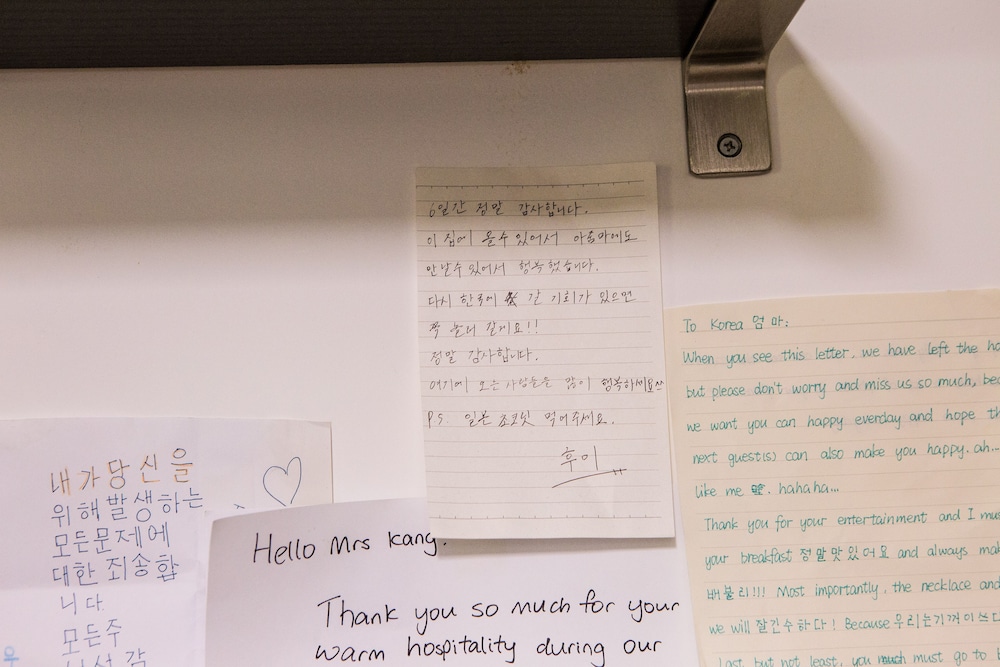 6일간 정말 감사합니다.
이 집에 올수 있어서 아줌마에도
만날수 있어서 행복했습니다.
다시 한국에 갈 기회가 있으면
꼭 놀러 갈게요!!
정말 감사합니다.
여기에 오는 사람들을 많이 행복하세요
P.S. 일본 초코릿 먹어주세요.
후이
To Korea 엄마:
When you see this letter, we have left the
but please don't worry and miss us so much,
we want you can happy everday and hope
next guest(s) can also make you happy. ah...
like me. hahaha...
Thank you for your entertainment and I
your breakfast 정말맛있어요 and always
배불리!!! Most importantly, the necklace and
we will 잘간수하다! Because 우리는
Last but not least, you much must go to
내가당신을
위해발생하는
모든문제에
대한 죄송합
니다.
모든주
Hello Mrs Kang.
Thank you so much for your
warm hospitality during our